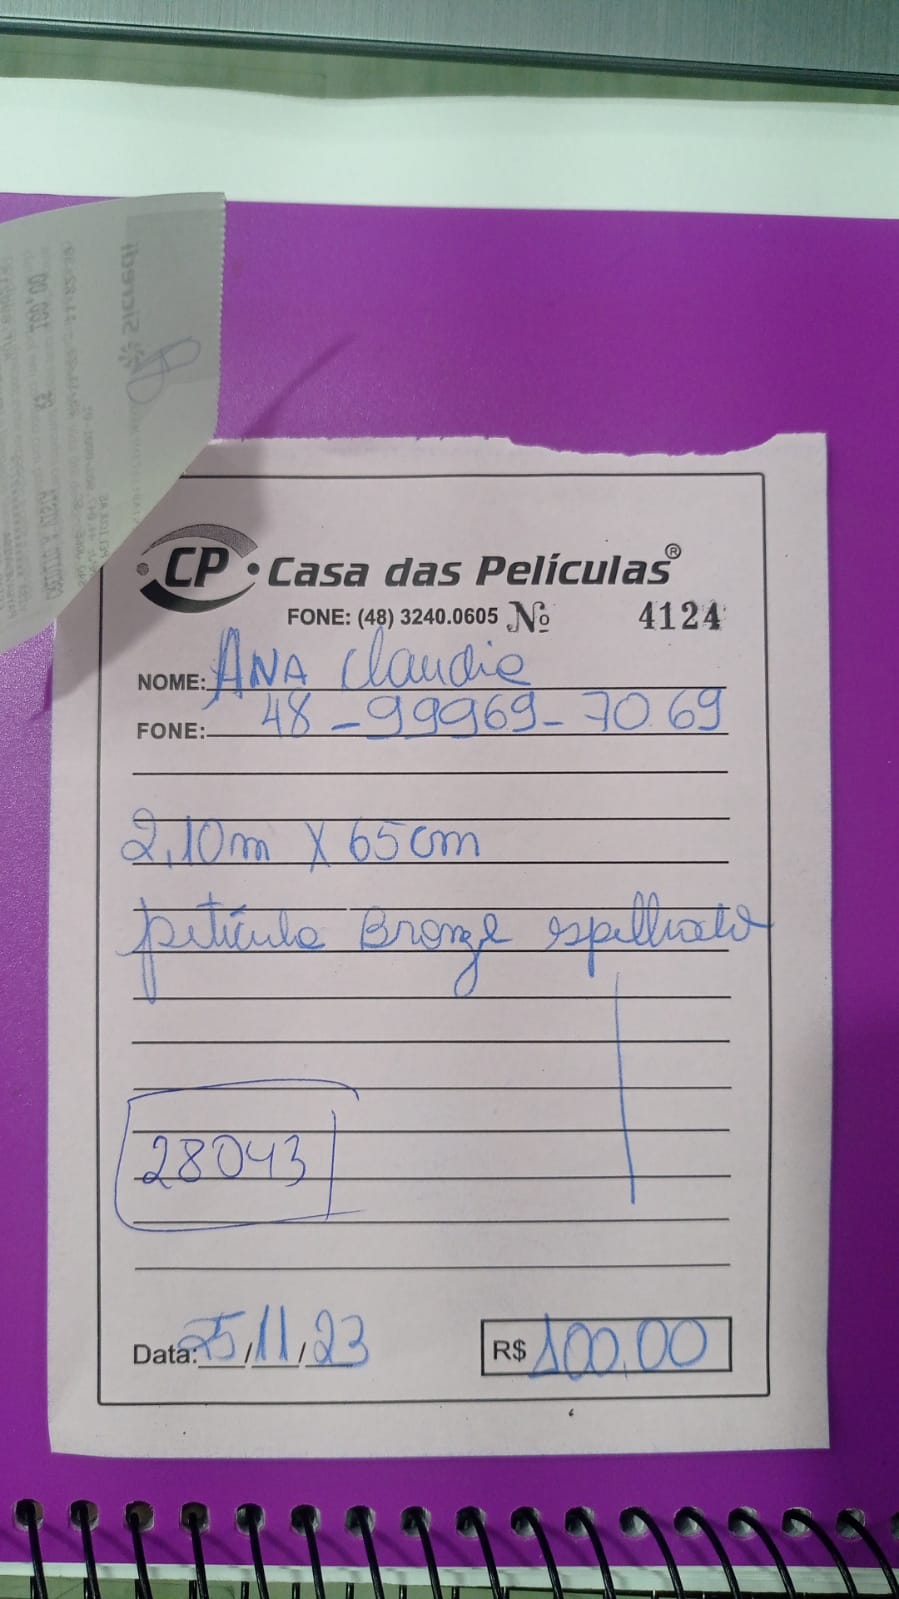 Sicredi
100,00
CP Casa das Películas®
FONE: (48) 3240.0605 Nº 4124
NOME: ANA Claudia
FONE: 48-99969-7069
2,10m X 65cm
película Bronze espelhado
28043
Data: 25/11/23 R$ 100,00